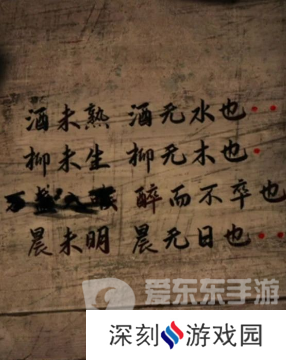 酒未熟 酒无水也
柳未生 柳无木也
醉而不卒也
晨未明 晨无日也
爱东东手游
深刻游戏园